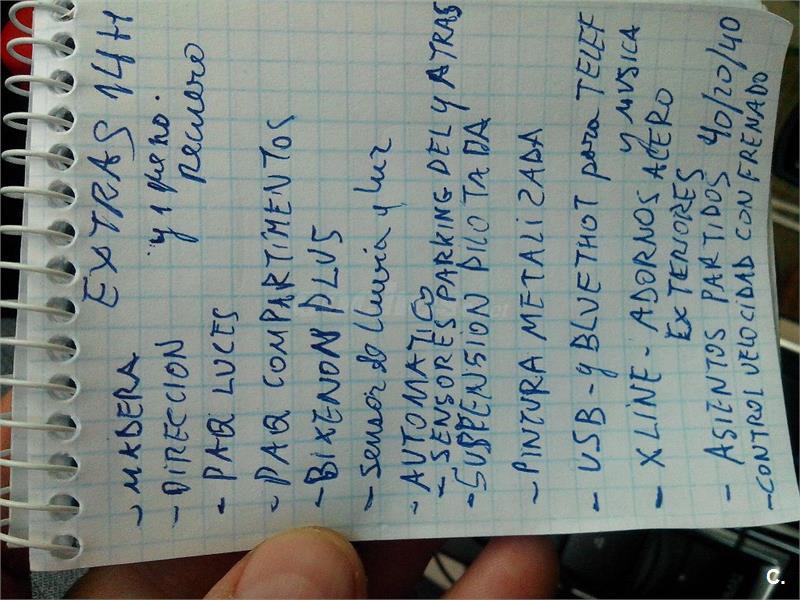 EXTRAS 14H
- MADERA
- DIRECCION y 1 freno. Recuero
- PAQ LUCES
- PAQ COMPARTIMENTOS
- BIXENON PLUS
- sensor de lluvia y luz
- AUTOMATICO
- SENSORES PARKING DEL Y ATRAS
- SUSPENSION PILOTADA
- PINTURA METALIZADA
- USB - y BLUETHOT para TELEF
y MUSICA
- XLINE - ADORNOS ACERO
EXTERIORES
- ASIENTOS PARTIDOS 40/20/40
- CONTROL VELOCIDAD CON FRENADO
C.